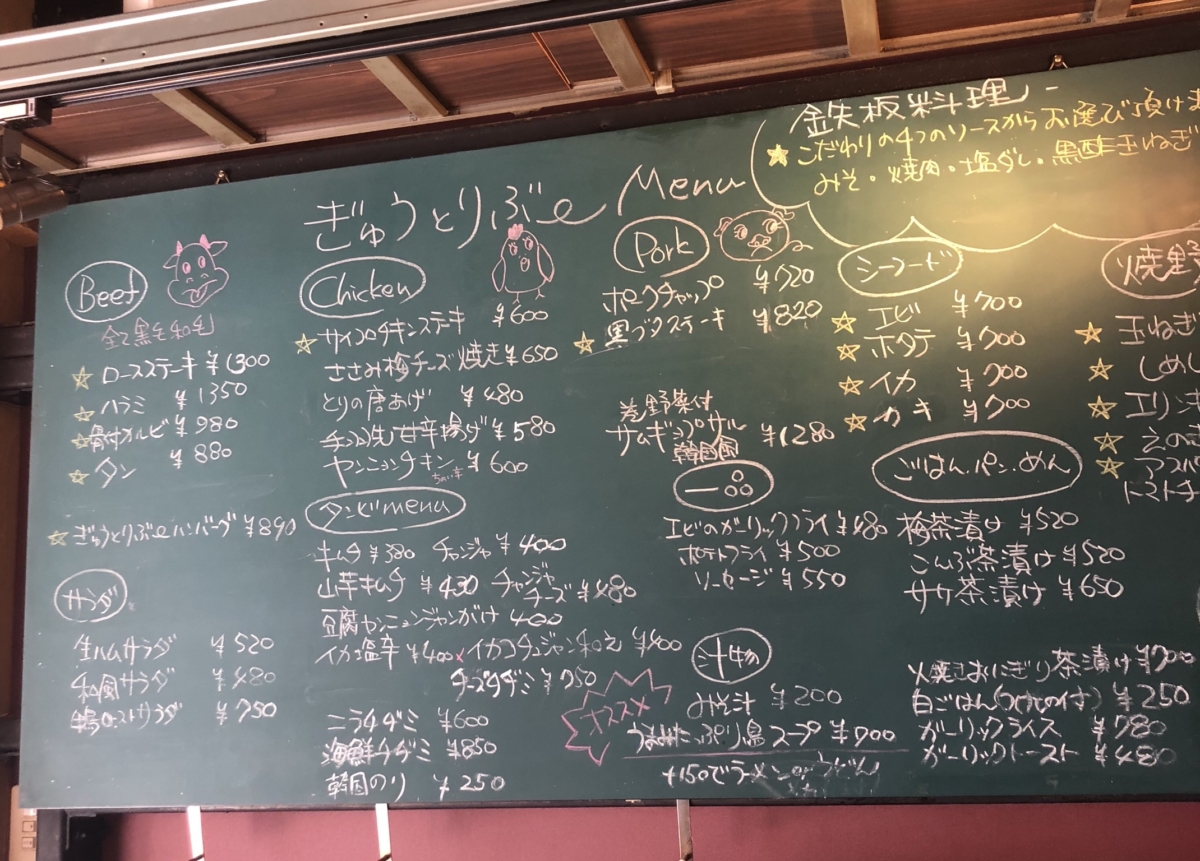 鉄板料理
★こだわりの4つのソースからお選び頂けま
みそ・焼肉・塩ダレ・黒酢玉ねぎ
ぎゅうとりぶー Menu
Beef
全て黒毛和毛
★ロースステーキ ¥1300
★ハラミ ¥1350
★骨付カルビ ¥980
★タン ¥880
★ぎゅうとりぶーハンバーグ ¥890
サラダ
生ハムサラダ ¥520
和風サラダ ¥480
ローストサラダ ¥750
Chicken
★サイコロチキンステーキ ¥600
ささみ梅チーズ焼き ¥650
とりの唐あげ ¥480
甘辛揚げ ¥580
ヤンニョンチキン ¥600
タンピmenu
キムチ ¥380 チャンジャ ¥400
山芋キムチ ¥430 チャンジャチーズ ¥480
豆腐ヤンニョンジャンがけ 400
イカ塩辛 ¥400 イカコチュジャン和え ¥400
チーズチヂミ ¥750
ニラチヂミ ¥600
海鮮チヂミ ¥850
韓国のり ¥250
Pork
ポークチャップ ¥720
★黒ブタステーキ ¥820
巻野菜付
サムギョプサル ¥1280
韓国風
一品
エビのガーリックフライ ¥480
ポテトフライ ¥500
ソーセージ ¥550
汁物
みそ汁 ¥200
オススメ
うまみたっぷり鳥スープ ¥700
+150でラーメンorうどん
シーフード
★エビ ¥700
★ホタテ ¥700
★イカ ¥700
★カキ ¥700
ごはん.パン.めん
梅茶漬け ¥520
こんぶ茶漬け ¥520
サケ茶漬け ¥650
焼きおにぎり茶漬け ¥700
白ごはん ¥250
ガーリックライス ¥780
ガーリックトースト ¥480
焼野
★玉ねぎ
★しめし
★エリン
★えのき
★アスパ
トマトチ